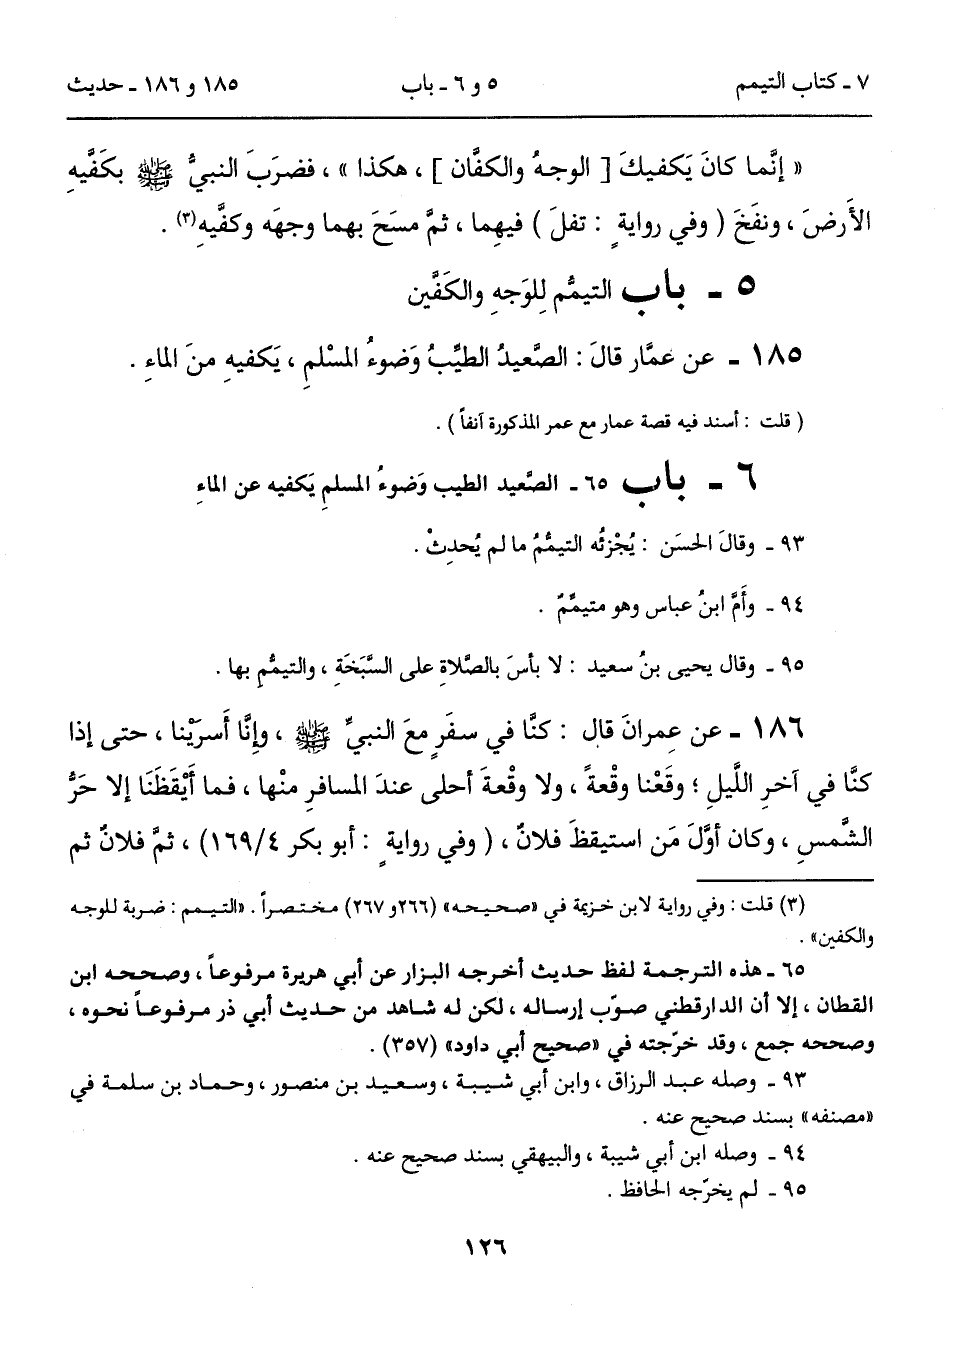 ٧ ـ كتاب التيمم ٥ و ٦ ـ باب ١٨٥ و ١٨٦ ـ حديث
« إنَّما كانَ يَكفيكَ [ الوجهُ والكفَّان ] ، هكذا » ، فضرَبَ النبيُّ ﷺ بكفَّيهِ
الأَرضَ ، ونفَخَ ( وفي روايةٍ : تفلَ ) فيهِما ، ثمَّ مسَحَ بهما وجهَه وكفَّيهِ(٣) .
٥ ـ بابُ التيمُّمِ لِلوَجهِ والكَفَّين
١٨٥ ـ عن عمَّار قالَ : الصَّعيدُ الطيِّبُ وَضوءُ المسْلمِ ، يَكفيهِ منَ الماءِ .
( قلت : أسند فيه قصة عمار مع عمر المذكورة آنفاً ) .
٦ ـ بابٌ ٦٥ ـ الصَّعيد الطيب وَضوءُ المسلمِ يَكفيه عن الماءِ
٩٣ ـ وقالَ الحسَن : يُجْزئُه التيمُّمُ ما لم يُحدِثْ .
٩٤ ـ وأَمَّ ابنُ عباس وهو متيمِّمٌ .
٩٥ ـ وقال يحيى بنُ سعيد : لا بأسَ بالصَّلاةِ على السَّبَخَةِ ، والتيمُّمِ بها .
١٨٦ ـ عن عِمرانَ قال : كنَّا في سفَرٍ معَ النبيِّ ﷺ ، وإنَّا أَسرَيْنا ، حتى إذا
كنَّا في آخرِ اللَّيلِ ؛ وقَعْنا وقْعةً ، ولا وقْعةَ أحلى عندَ المسافرِ منْها ، فما أَيْقظَنَا إلا حَرُّ
الشَّمسِ ، وكان أوَّلَ مَن استيقظَ فلانٌ ، ( وفي روايةٍ : أبو بكر ٤/١٦٩) ، ثمَّ فلانٌ ثم
(٣) قلت : وفي رواية لابن خزيمة في «صحيحه» (٢٦٦ و ٢٦٧) مختصراً . «التيمم : ضربة للوجه
والكفين» .
٦٥ ـ هذه الترجمة لفظ حديث أخرجه البزار عن أبي هريرة مرفوعاً ، وصححه ابن
القطان ، إلا أن الدارقطني صوّب إرساله ، لكن له شاهد من حديث أبي ذر مرفوعاً نحوه ،
وصححه جمع ، وقد خرّجته في «صحيح أبي داود» (٣٥٧) .
٩٣ ـ وصله عبد الرزاق ، وابن أبي شيبة ، وسعيد بن منصور ، وحماد بن سلمة في
«مصنفه» بسند صحيح عنه .
٩٤ ـ وصله ابن أبي شيبة ، والبيهقي بسند صحيح عنه .
٩٥ ـ لم يخرّجه الحافظ .
١٢٦